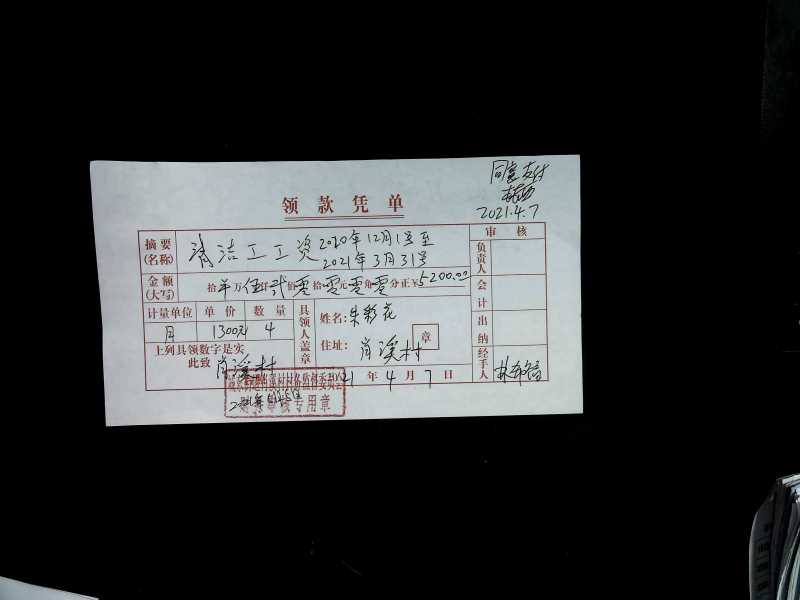 同意支付
2021.4.7
领款凭单
摘要(名称) 清洁工工资 2020年12月1号至
2021年3月31号
审核
负责人
金额(大写) 拾 万 伍仟贰佰零拾零元零角零分正¥5200.00
会计
计量单位 单价 数量
月 1300元 4
具领人盖章
姓名:朱彩花
住址:肖溪村
章
出纳
上列具领数字是实
此致 肖溪村
经手人
21年4月7日
专用章